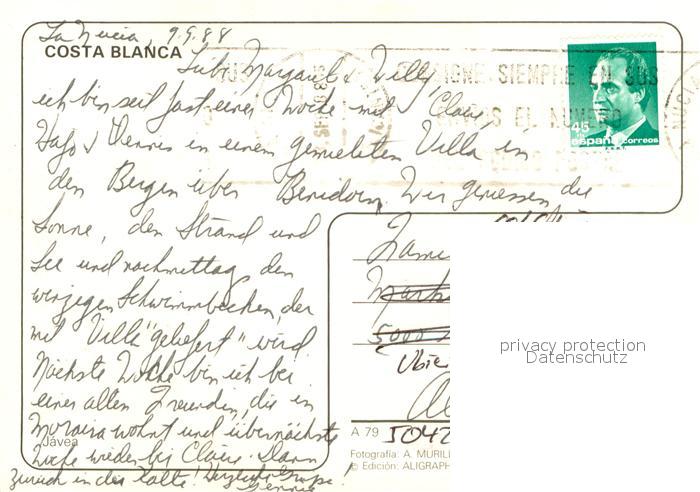 La Nucia, 9.9.88
COSTA BLANCA
Liebe Margaret & Willy,
ich bin seit fast einer Woche mit Claus,
Hajo & Dennis in einem gemieteten Villa in
den Bergen über Benidorm. Wir geniessen die
Sonne, den Strand und
See und nachmittag den
winzigen Schwimmbecken, der
mit Villa "geliefert" wird.
Nächste Woche bin ich bei
einer alten Freundin, die in
Moraira wohnt und übernächste
Woche wieder bei Claus. Dann
zurück in der Kälte! Herzliche Grüße!
SIEMPRE EN SUS
EL NUMERO
45
españa correos
Fami
5000
privacy protection
Datenschutz
Jávea
A 79
5042
Fotografía: A. MURILL
© Edición: ALIGRAPH